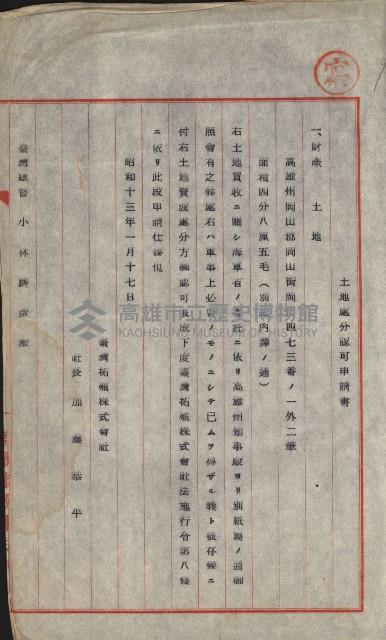 土地處分認可申請書
一、財產 土地
高雄州岡山郡岡山街岡山四七三番ノ一外二筆
面積四分八厘五毛（別紙內譯ノ通）
右土地買收ニ關シ海軍省ノ委託ニ依リ高雄州知事殿ヨリ別紙寫ノ通御
照會有之候處右ハ軍事上必要ノモノニシテ已ムヲ得ザル儀ト被存候ニ
付右土地賣渡處分方御認可被成下度臺灣拓殖株式會社法施行令第八條
ニ依リ此段申請仕候也
昭和十三年一月十七日
臺灣拓殖株式會社
社長 加藤恭平
臺灣總督 小林躋造殿
高雄市立歷史博物館
KAOHSIUNG MUSEUM OF HISTORY